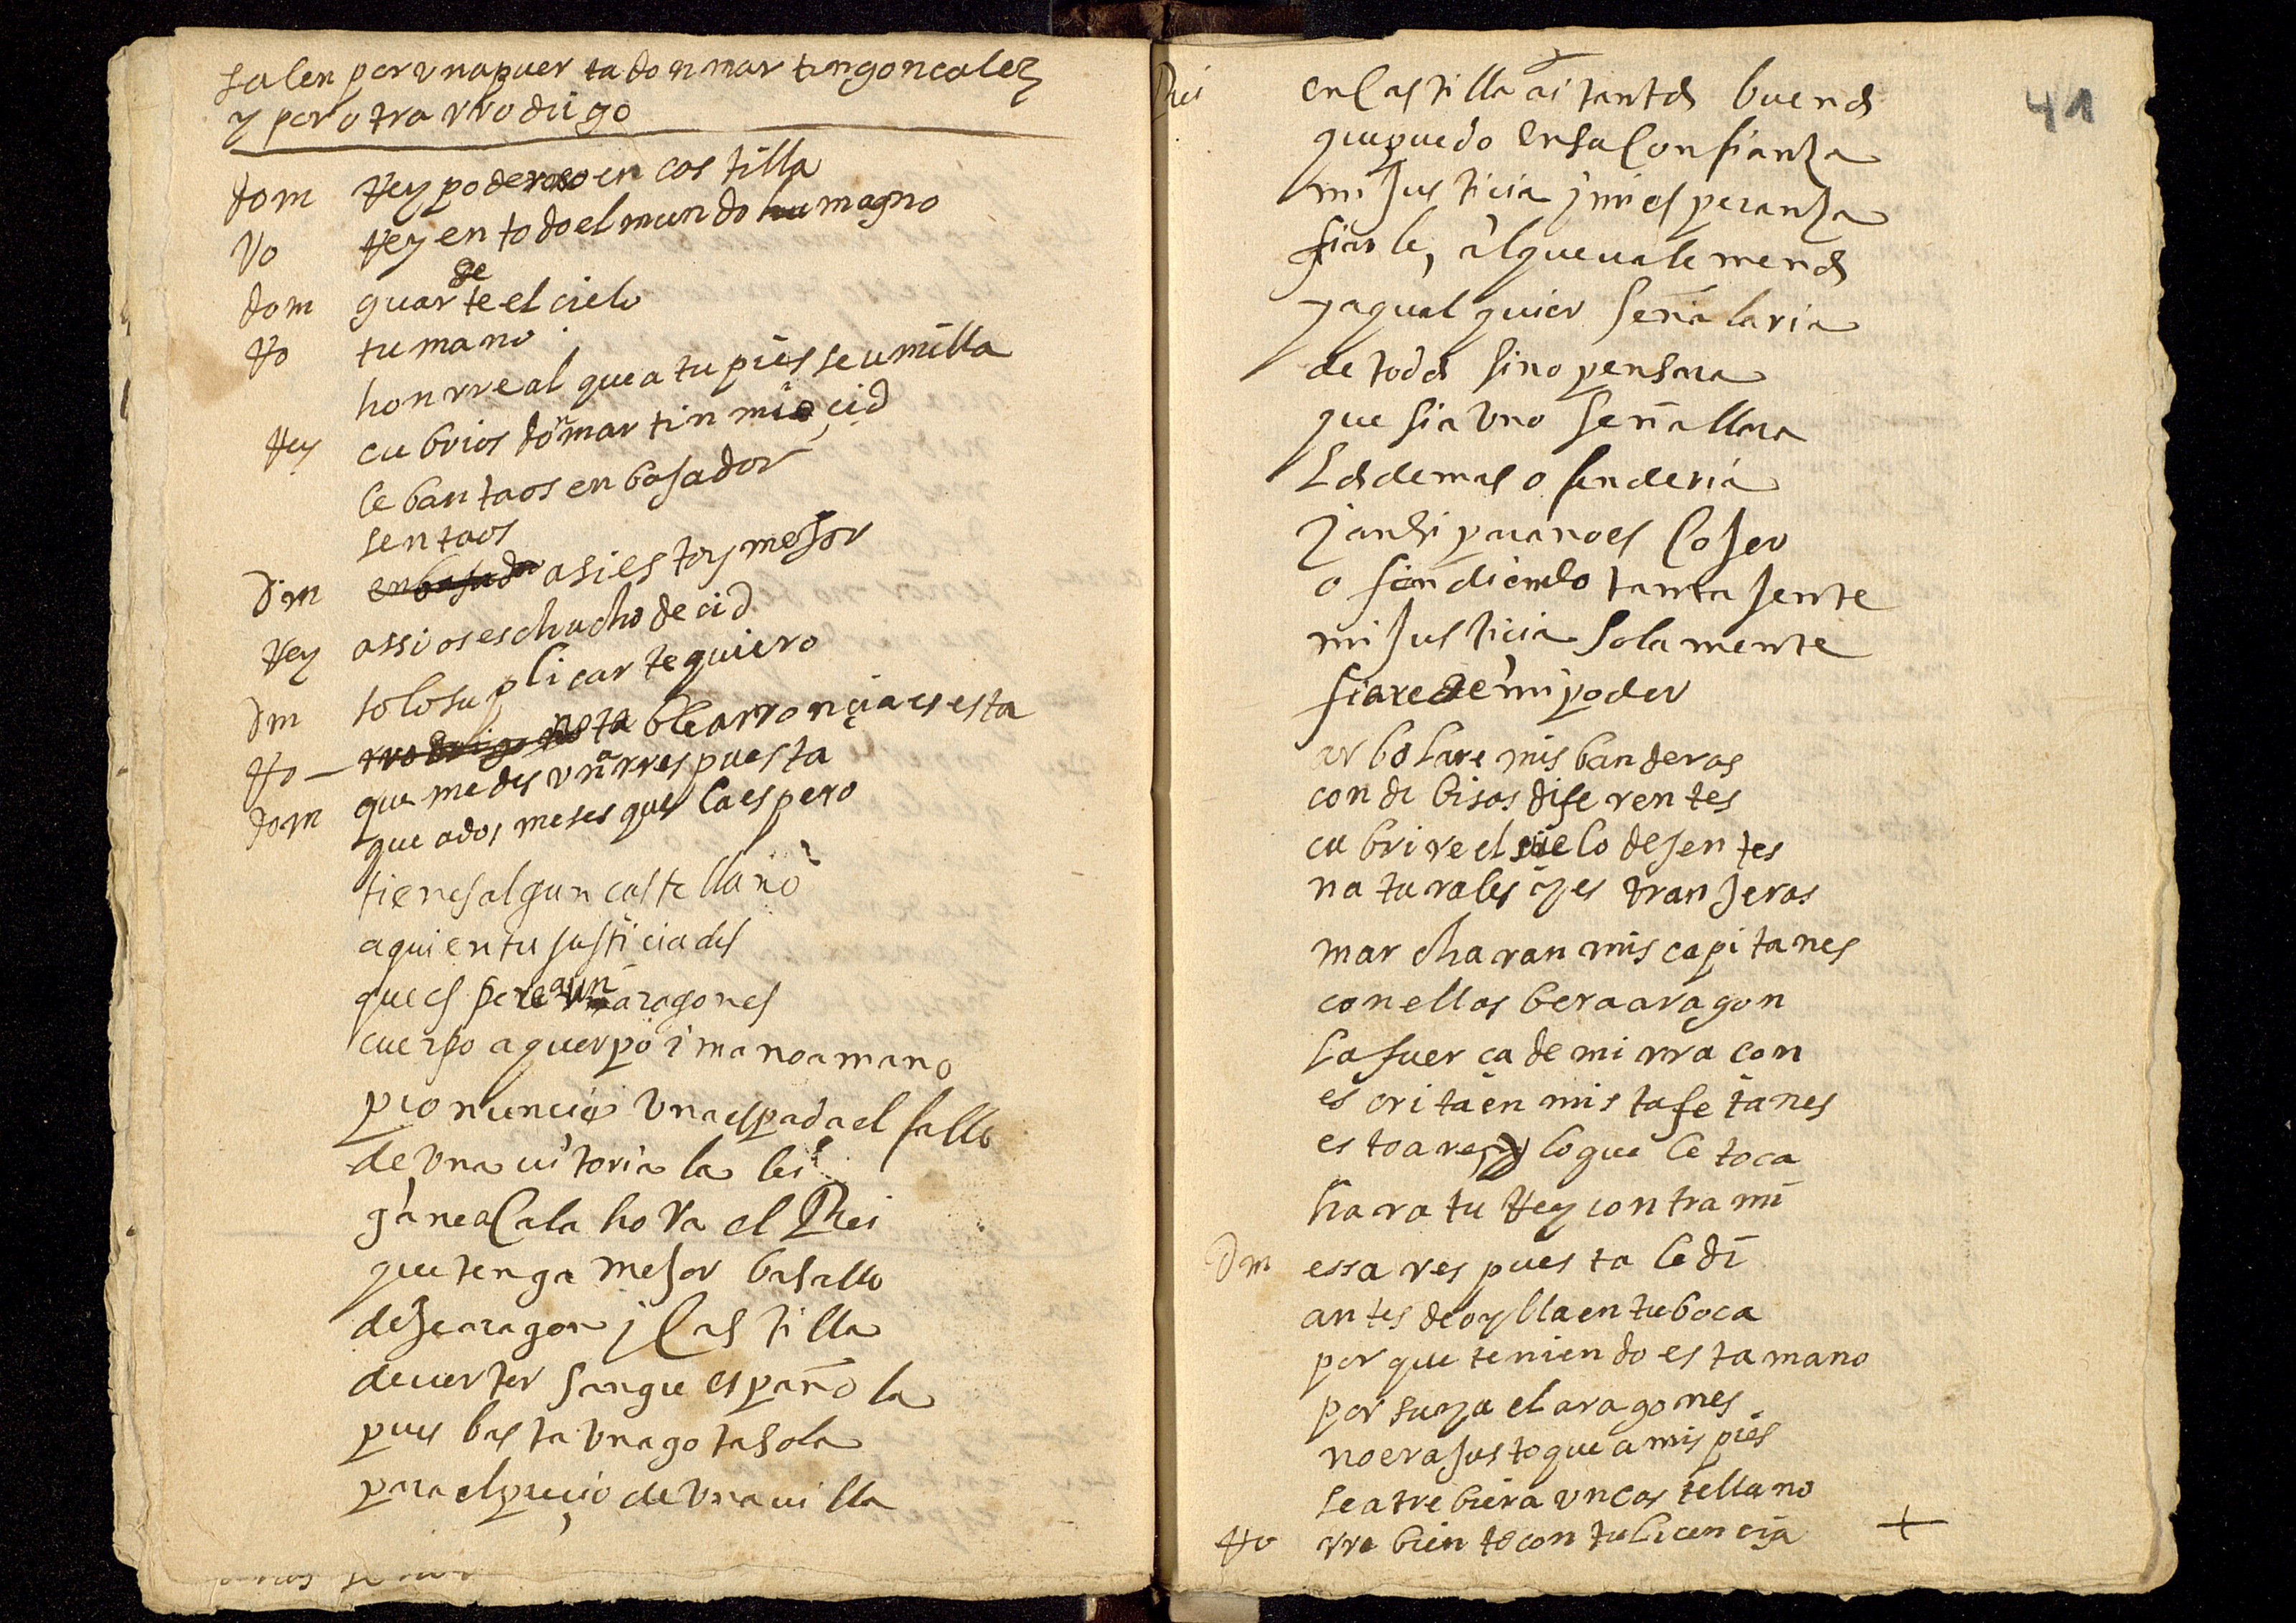 salen por una puerta don martin goncalez
y por otra rrodrigo
dom Rey poderoso en castilla
Ro Rey en todo el mundo magno
dom guardete el cielo
Ro tu mano
honrre al que a tu pies se umilla
Rey cubrios don martin mio çid
lebantaos enbasador
sentaos
Dm enbasador asi estoy mejor
Rey assi os eschucho decid
Dm solo suplicarte quiero
Ro rrodrigo notable arrogançia es esta
dom que me des una rrespuesta
que a dos meses que la espero
tienes algun castellano
a quien tu justicia des
que espere a un aragones
cuerpo a querpo i mano a mano
pronuncie una espada el fallo
de una vitoria la lei
gane a Calahora el Rei
que tenga mejor basallo
deje aragon j Castilla
de verter sangre española
pues basta una gota sola
para el precio de una villa
41
Rei en Castilla ai tantos buenos
que puedo en su Confianza
mi Justicia j mi esperanza
fiarle, al que vale menos
y a qual quier señalaria
de todos si no pensara
que si a uno señallara
Los demas ofenderia
j ansi para no esCojer
ofendiendo tanta jente
mi Justicia solamente
fiare de mi poder
arbolare mis banderas
con dibisas diferentes
cubrire el suelo de jentes
naturales y estranjeras
marcharan mis capitanes
con ellas bera aragon
La fuerca de mi rracon
escrita en mis tafetanes
esto are y lo que le toca
hara tu Rey contra mi
Dm essa respuesta le di
antes de oylla en tu boca
por que teniendo esta mano
por suya el aragones
no era justo que a mis pies
se atrebiera un castellano
Ro rrebiento con tu licençia +